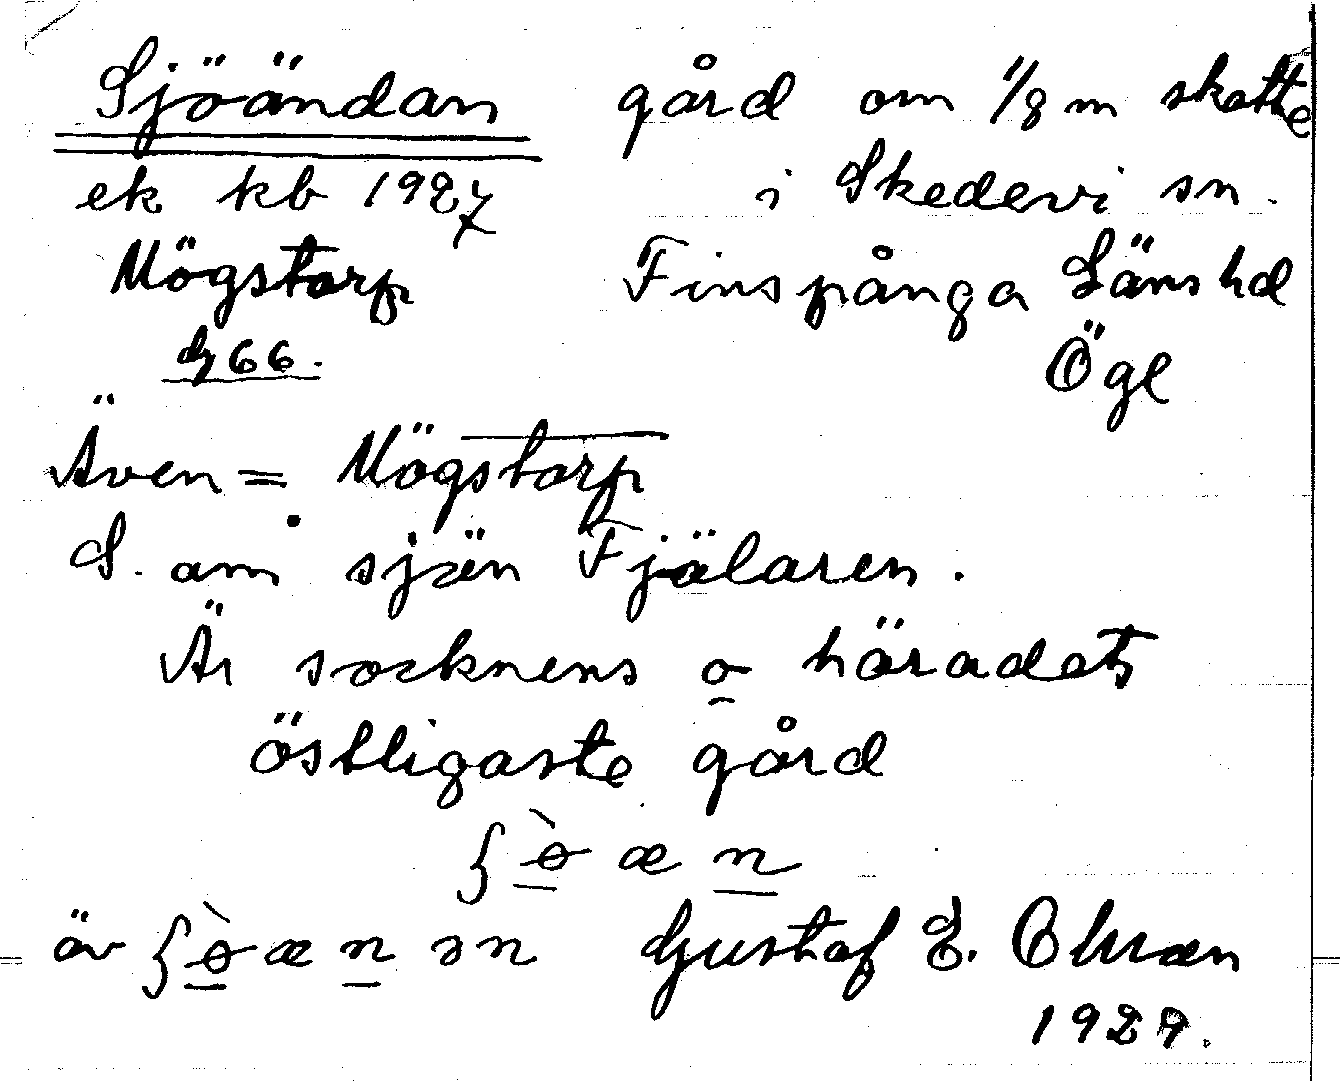 Sjöändan gård om 1/8 m skatte
ek kb 1927 i Skedevi sn.
Mögstorp Finspånga Läns hd
dy 66. Ögl
Även = Mögstorp
S. om sjön Fjälaren.
Är socknens o häradets
östligaste gård
Gustaf E. Ohræn
1929.